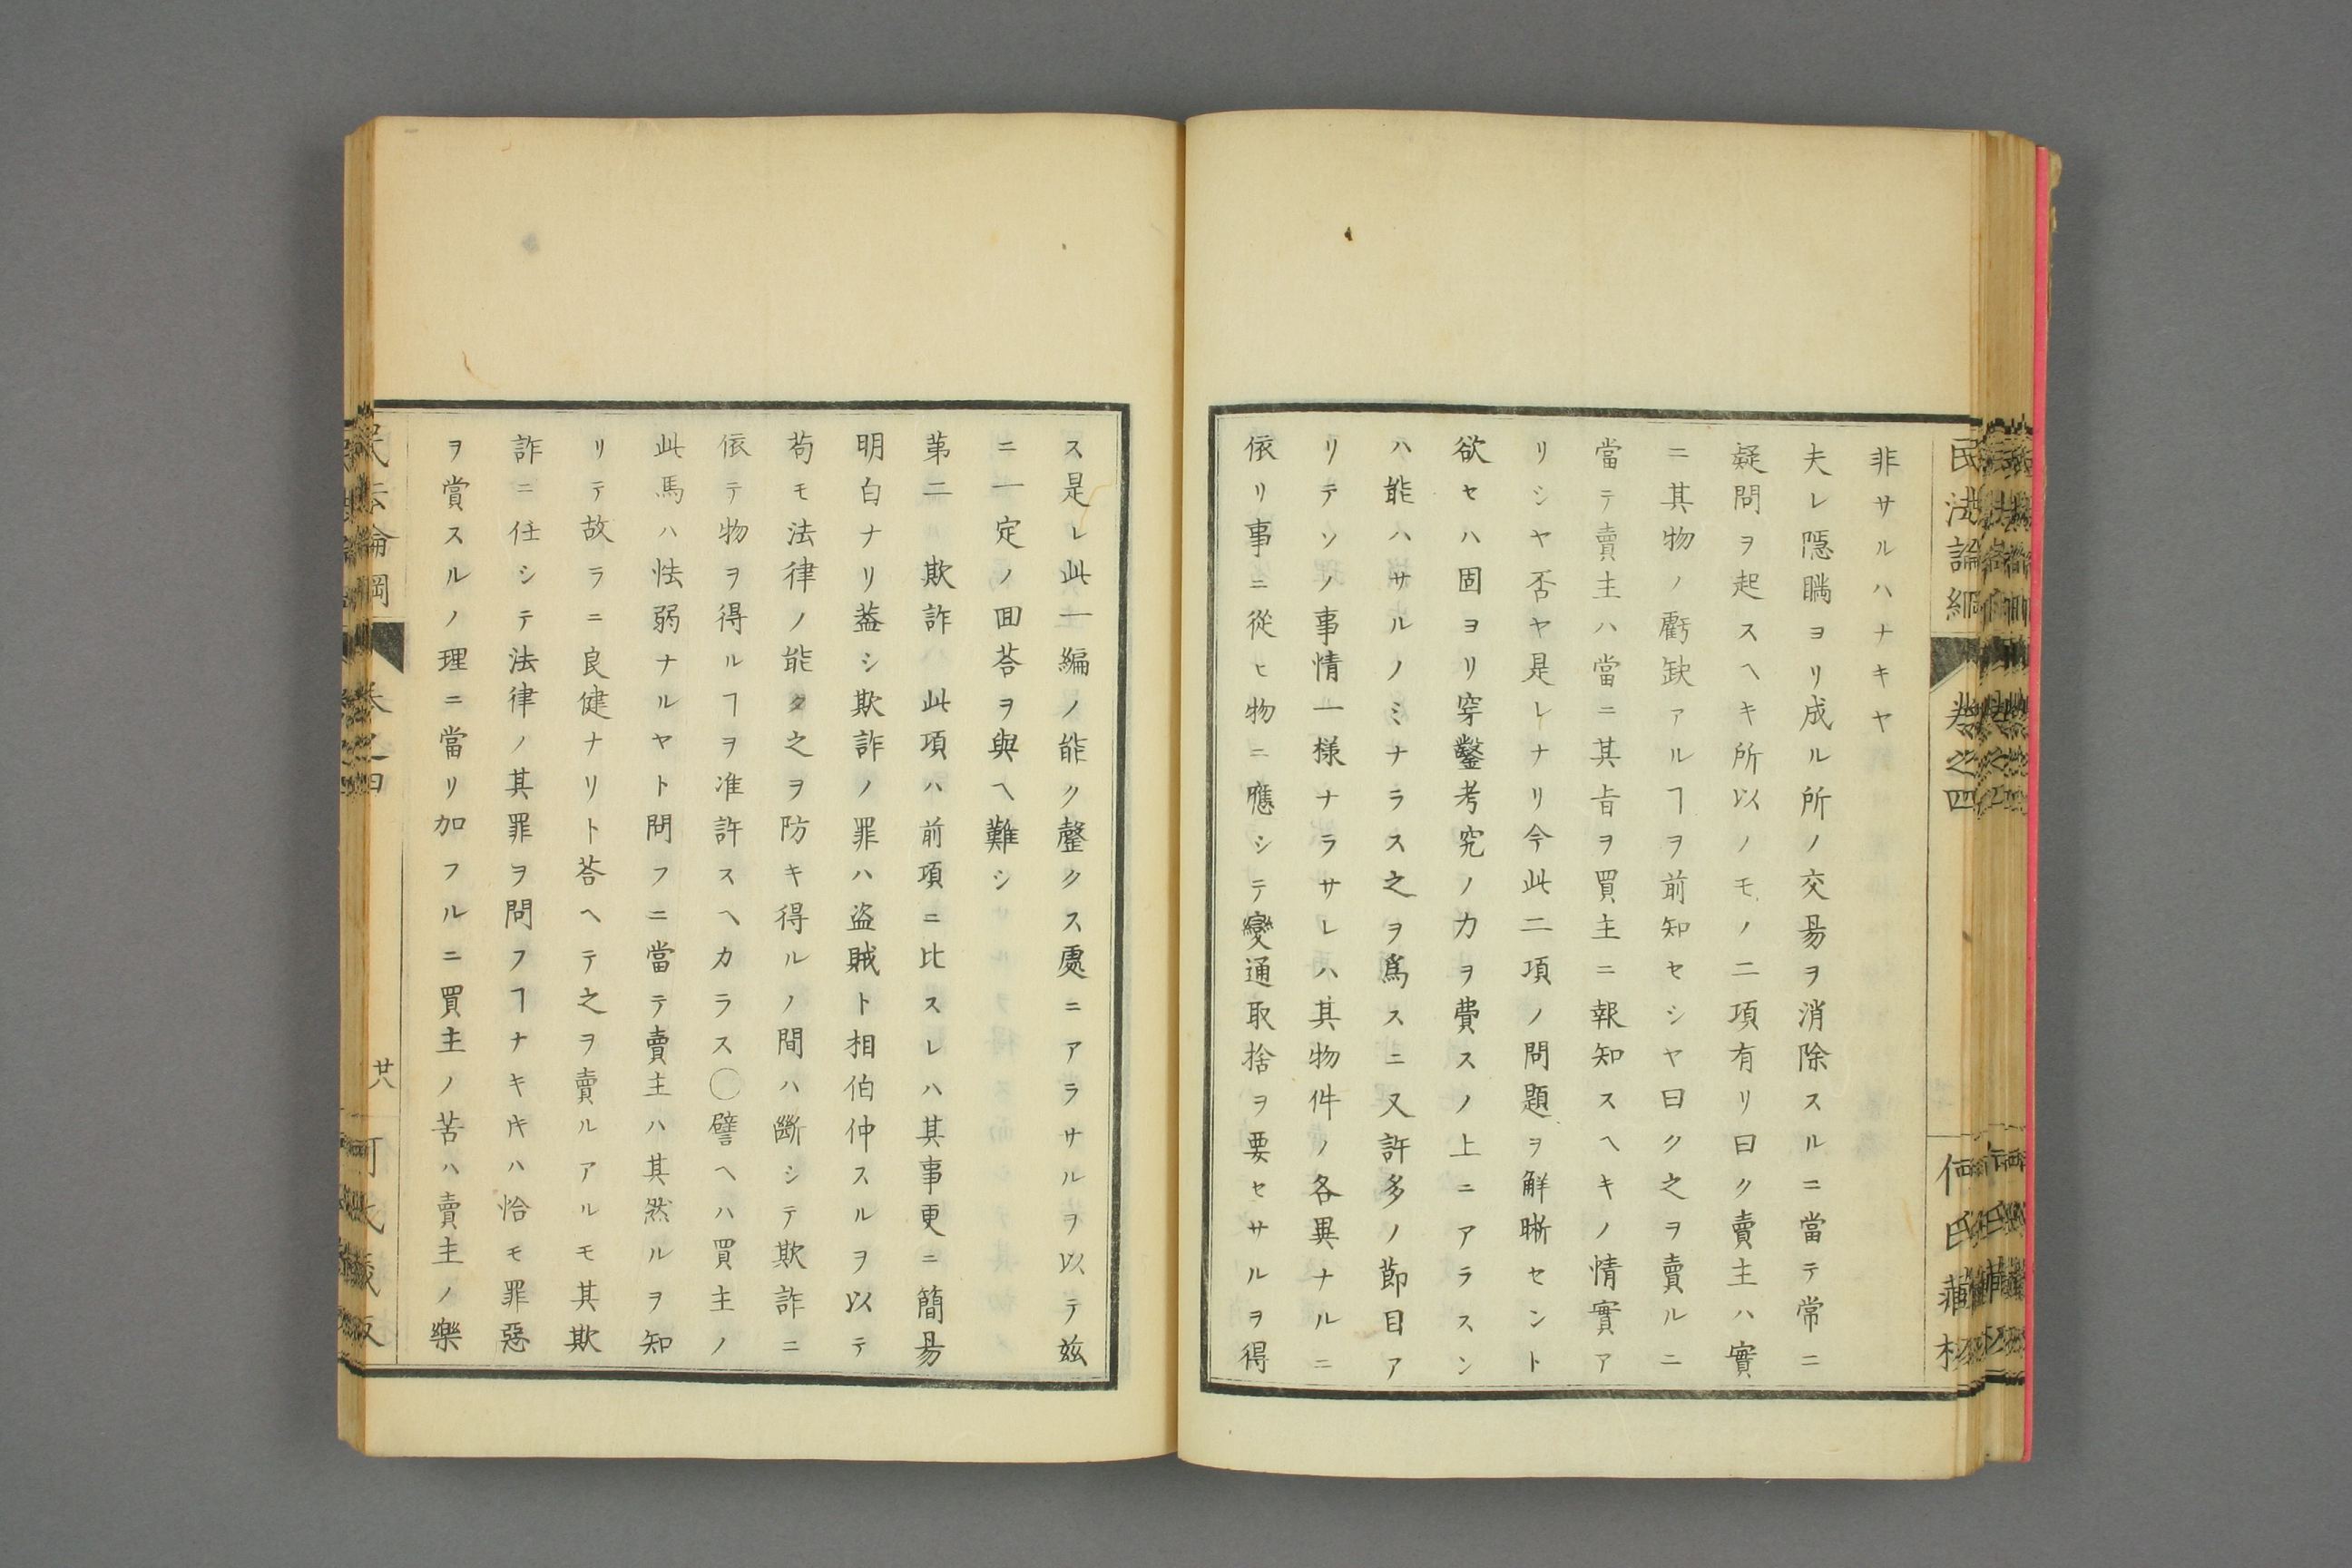 民法論綱
卷之四
非サルハナキヤ
夫レ隱瞞ヨリ成ル所ノ交易ヲ消除スルニ當テ常ニ
疑問ヲ起スヘキ所以ノモノ二項有リ曰ク賣主ハ實
ニ其物ノ虧缺アルヿヲ前知セシヤ曰ク之ヲ賣ルニ
當テ賣主ハ當ニ其旨ヲ買主ニ報知スヘキノ情實ア
リシヤ否ヤ是レナリ今此二項ノ問題ヲ觧晰セント
欲セハ固ヨリ穿鑿考究ノ力ヲ費スノ上ニアラスン
ハ能ハサルノミナラス之ヲ爲スニ又許多ノ節目ア
リテソノ事情一様ナラサレハ其物件ノ各異ナルニ
依リ事ニ從ヒ物ニ應シテ變通取捨ヲ要セサルヲ得
ス是レ此一編ノ能ク罄クス處ニアラサルヲ以テ玆
ニ一定ノ囬荅ヲ與ヘ難シ
苐二 欺詐 此項ハ前項ニ比スレハ其事更ニ簡昜
明白ナリ蓋シ欺詐ノ罪ハ盗賊ト相伯仲スルヲ以テ
茍モ法律ノ能ク之ヲ防キ得ルノ間ハ斷シテ欺詐ニ
依テ物ヲ得ルヿヲ准許スヘカラス〇譬ヘハ買主ノ
此馬ハ怯弱ナルヤト問フニ當テ賣主ハ其然ルヲ知
リテ故ラニ良健ナリト荅ヘテ之ヲ賣ルアルモ其欺
詐ニ任シテ法律ノ其罪ヲ問フヿナキ𪜈ハ恰モ罪惡
ヲ賞スルノ理ニ當リ加フルニ買主ノ苦ハ賣主ノ樂
民法論綱
卷之四
廿八